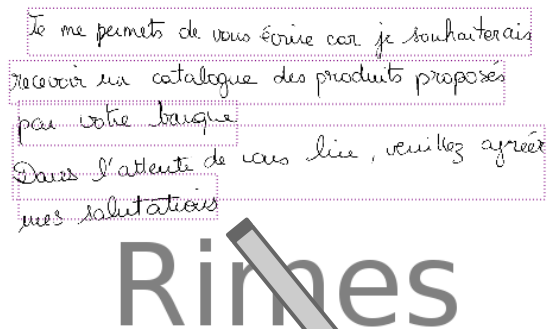 Je me permets de vous écrire car je souhaiterais
recevoir un catalogue des produits proposés
par votre banque
Dans l'attente de vous lire, veuillez agréér
mes salutations
Rimes